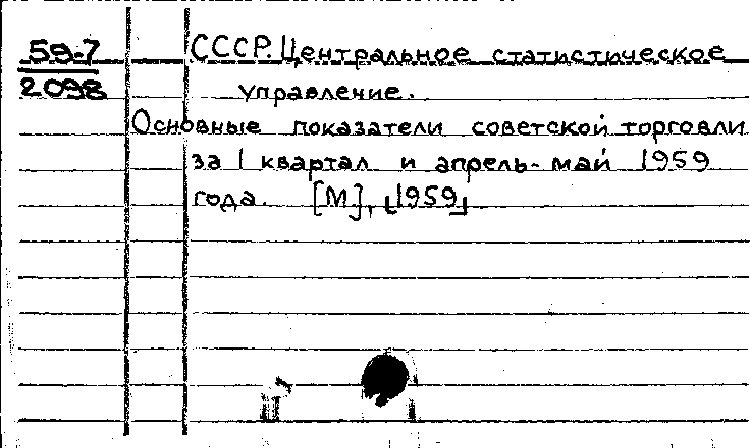 59-7
2098
СССР. Центральное статистическое
управление.
Основные показатели советской торговли
за I квартал и апрель-май 1959
года. [М], [1959]